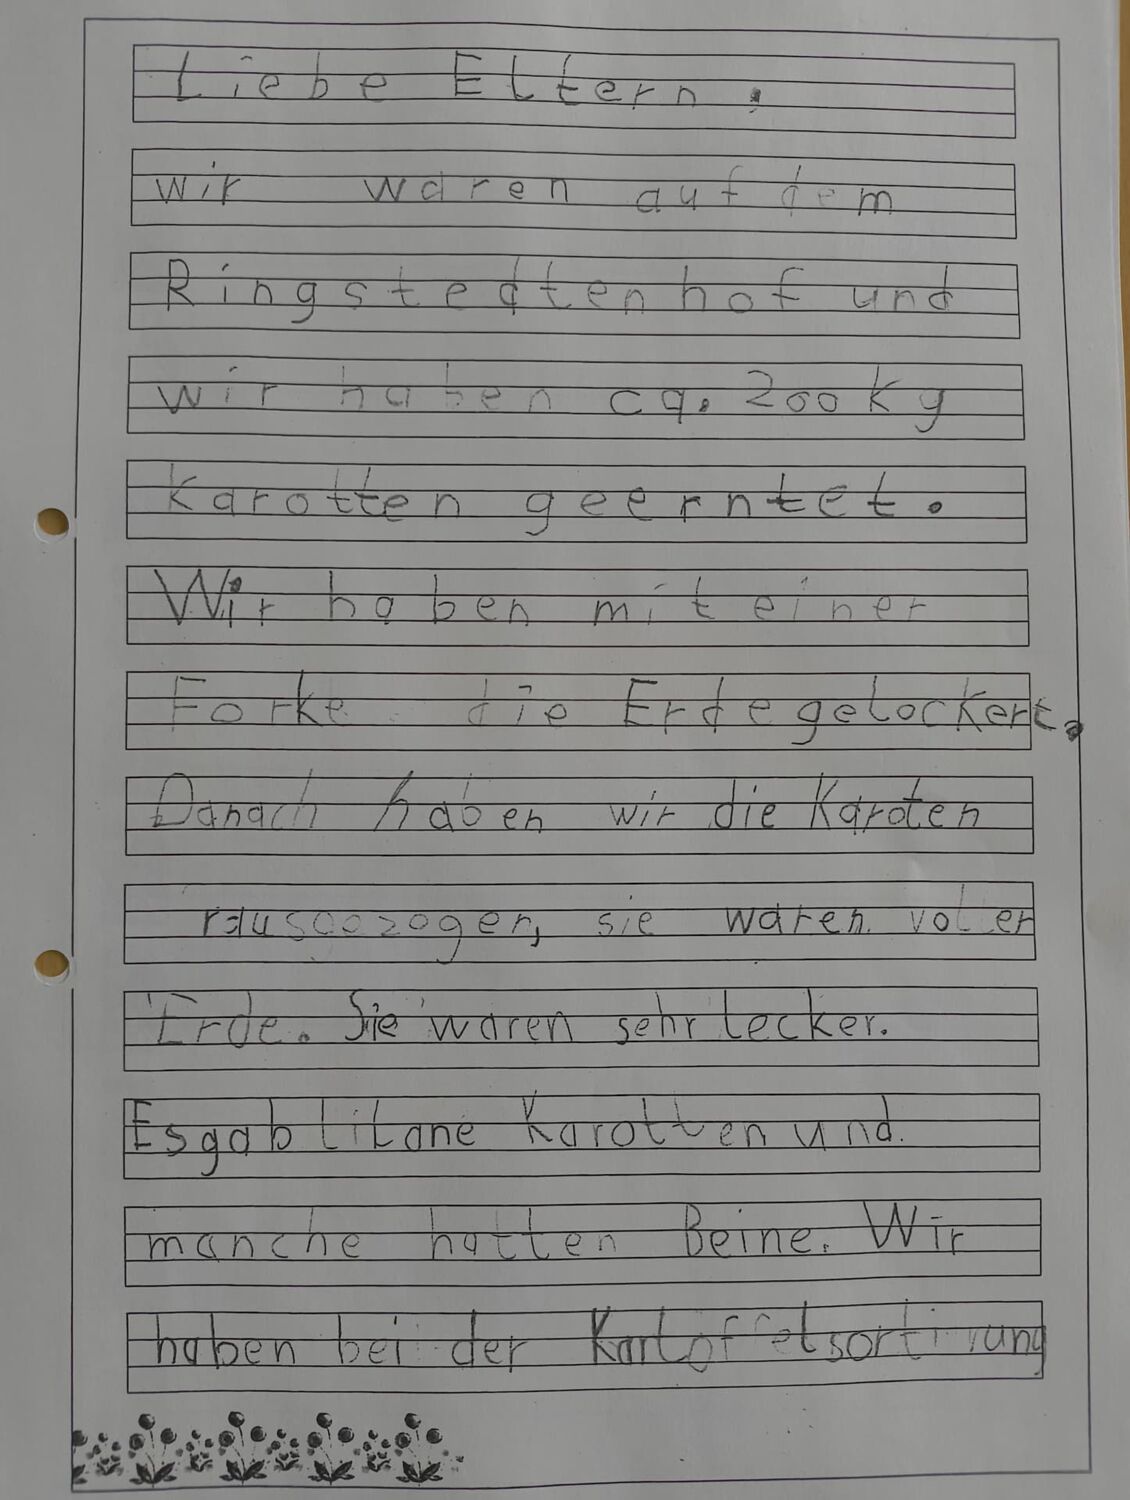 Liebe Eltern,
wir waren auf dem
Ringstedtenhof und
wir haben ca. 200 kg
Karotten geerntet.
Wir haben mit einer
Forke die Erde gelockert,
Danach haben wir die Karoten
rausgezogen, sie waren voller
Erde. Sie waren sehr lecker.
Es gab lilane Karotten und
manche hatten Beine. Wir
haben bei der Kartoffelsortirung